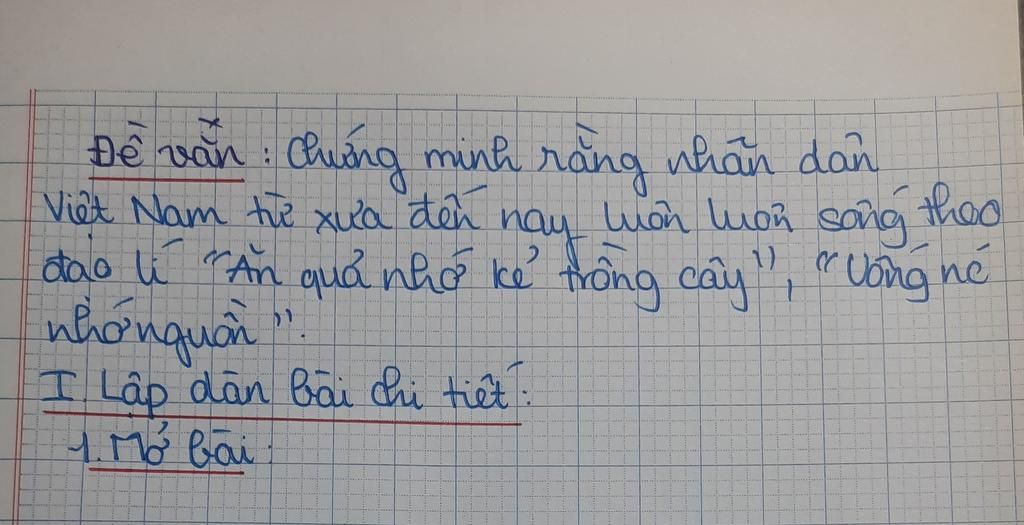 Đề văn: Chứng minh rằng nhân dân
Việt Nam từ xưa đến nay luôn luôn sống theo
đạo lí "Ăn quả nhớ kẻ trồng cây", "Uống nc
nhớ nguồn".
I. Lập dàn bài chi tiết:
1. Mở bài: